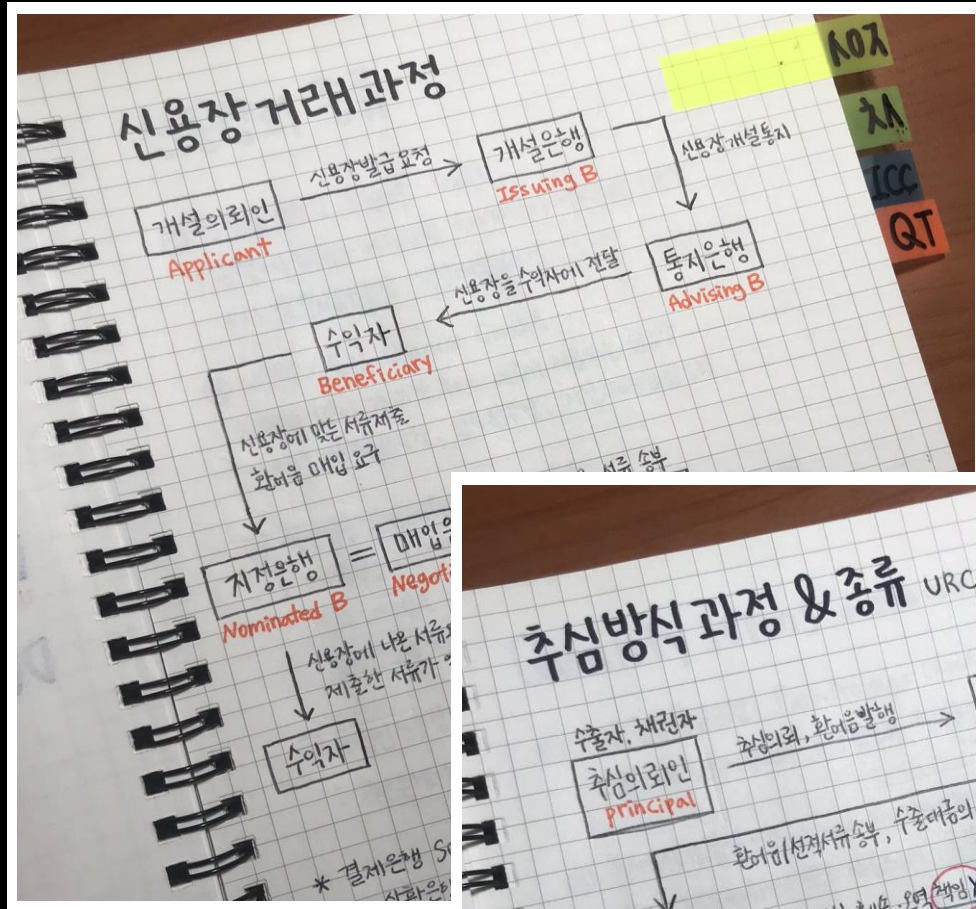 신용장 거래과정
신용장
추심
ICC
QT
개설의뢰인
Applicant
신용장발급요청
개설은행
Issuing B
신용장개설통지
통지은행
Advising B
신용장을 수익자에 전달
수익자
Beneficiary
신용장에 맞는 서류제출
환어음 매입 요구
서류 송부
지정은행 =
Nominated B
신용장에 나온 서류
제출한 서류가
수익자
* 결제은행
추심방식 과정 & 종류 URC
수출자, 채권자
추심의뢰인
principal
추심의뢰, 환어음발행
환어음/선적서류송부, 수출대금의
책임